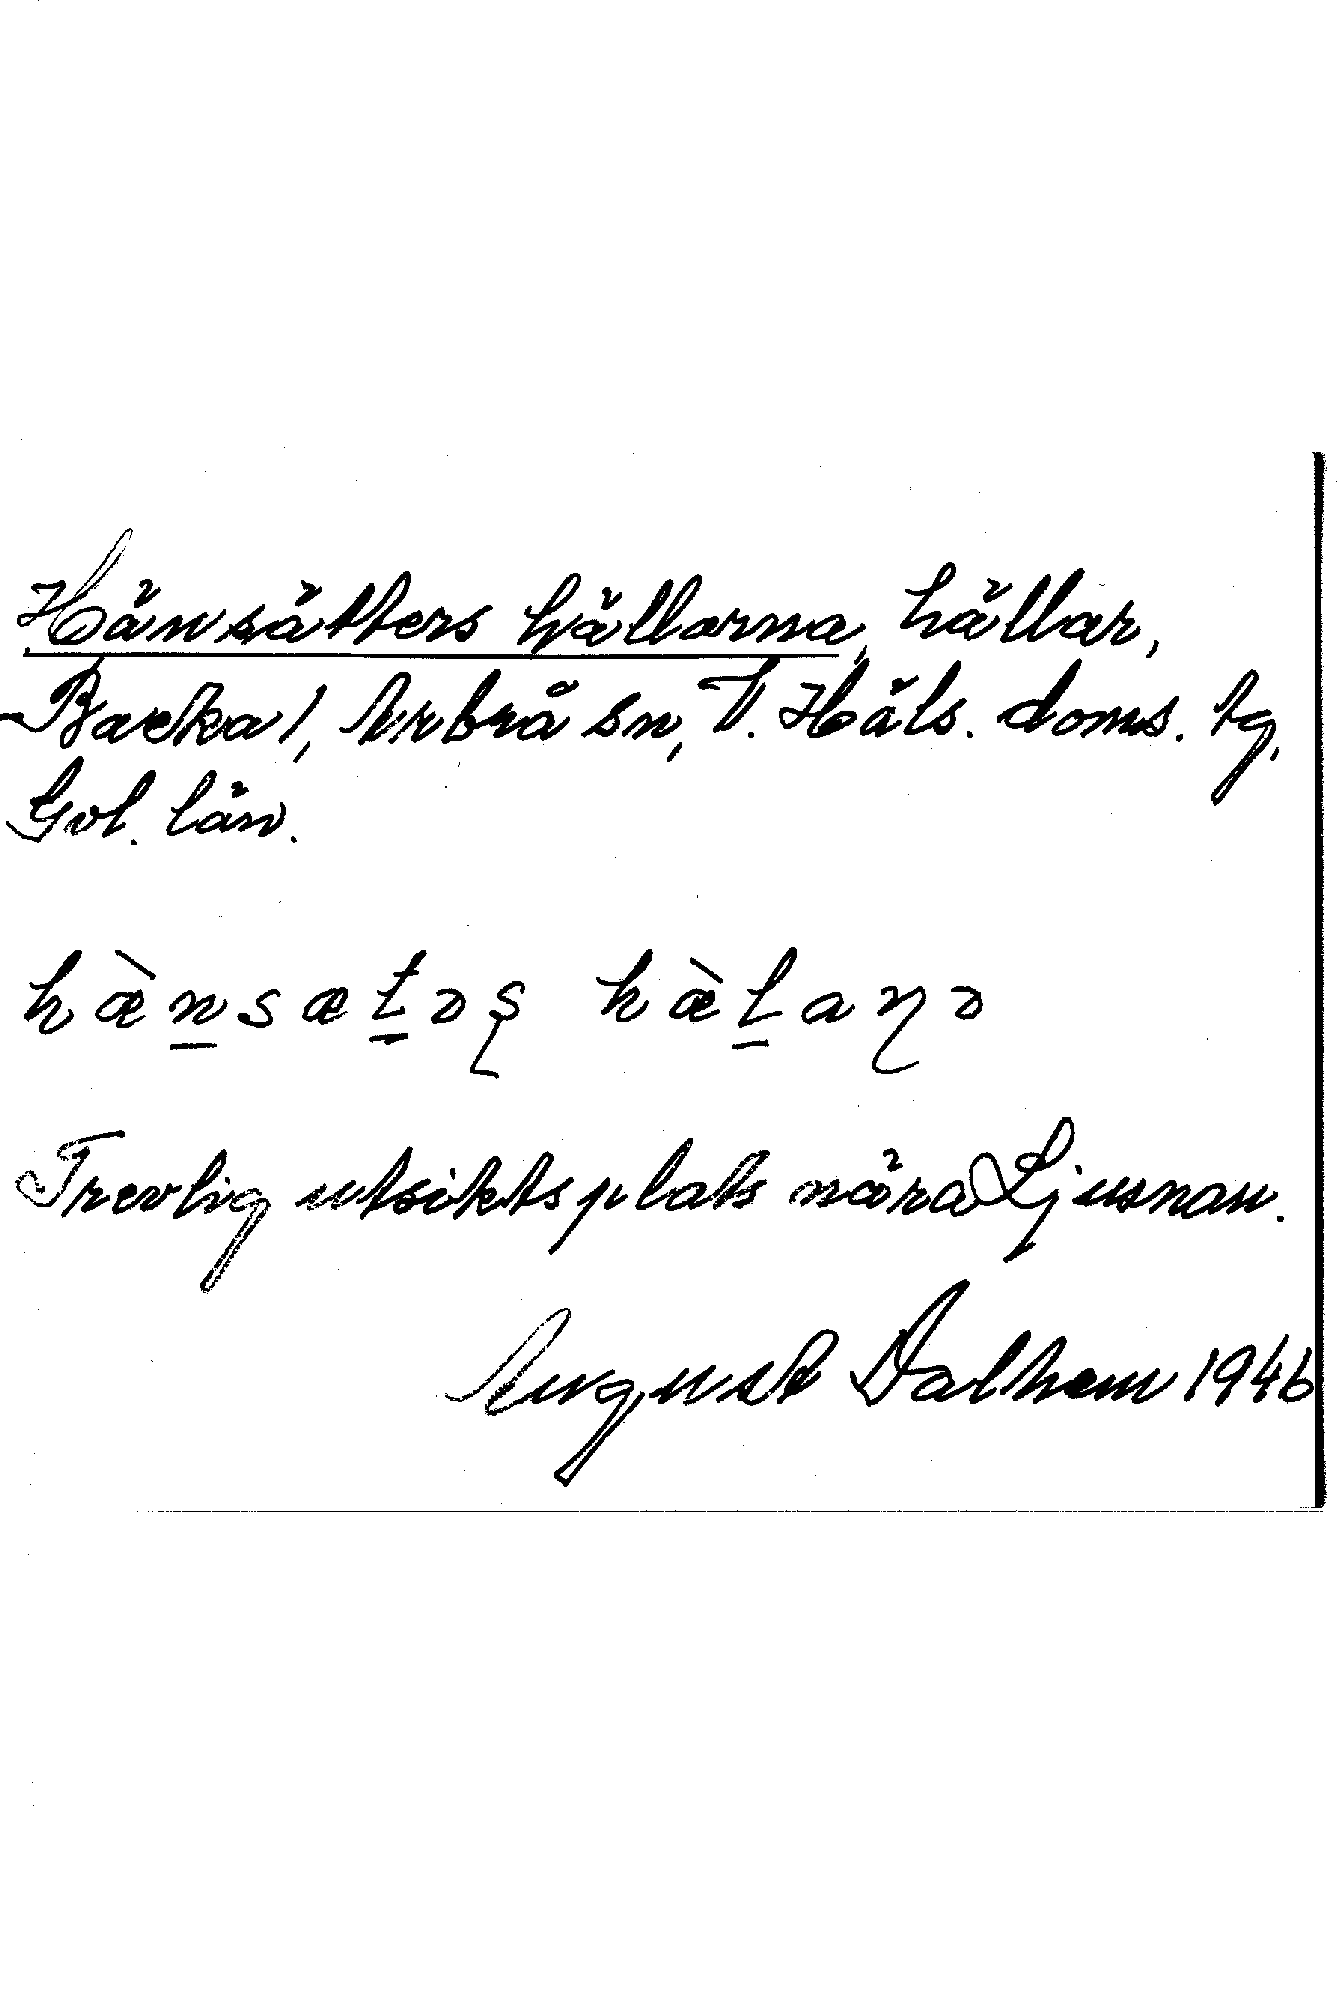 Hänsätters hällarna, hällar,
Backa 1, Arbrå sn, V. Häls. doms. tg,
Gvl. län.
hæ̀n̲sæt̲əʂ hæ̀l̲aɳə
Trevlig utsiktsplats nära Ljusnan.
August Dalhem 1946